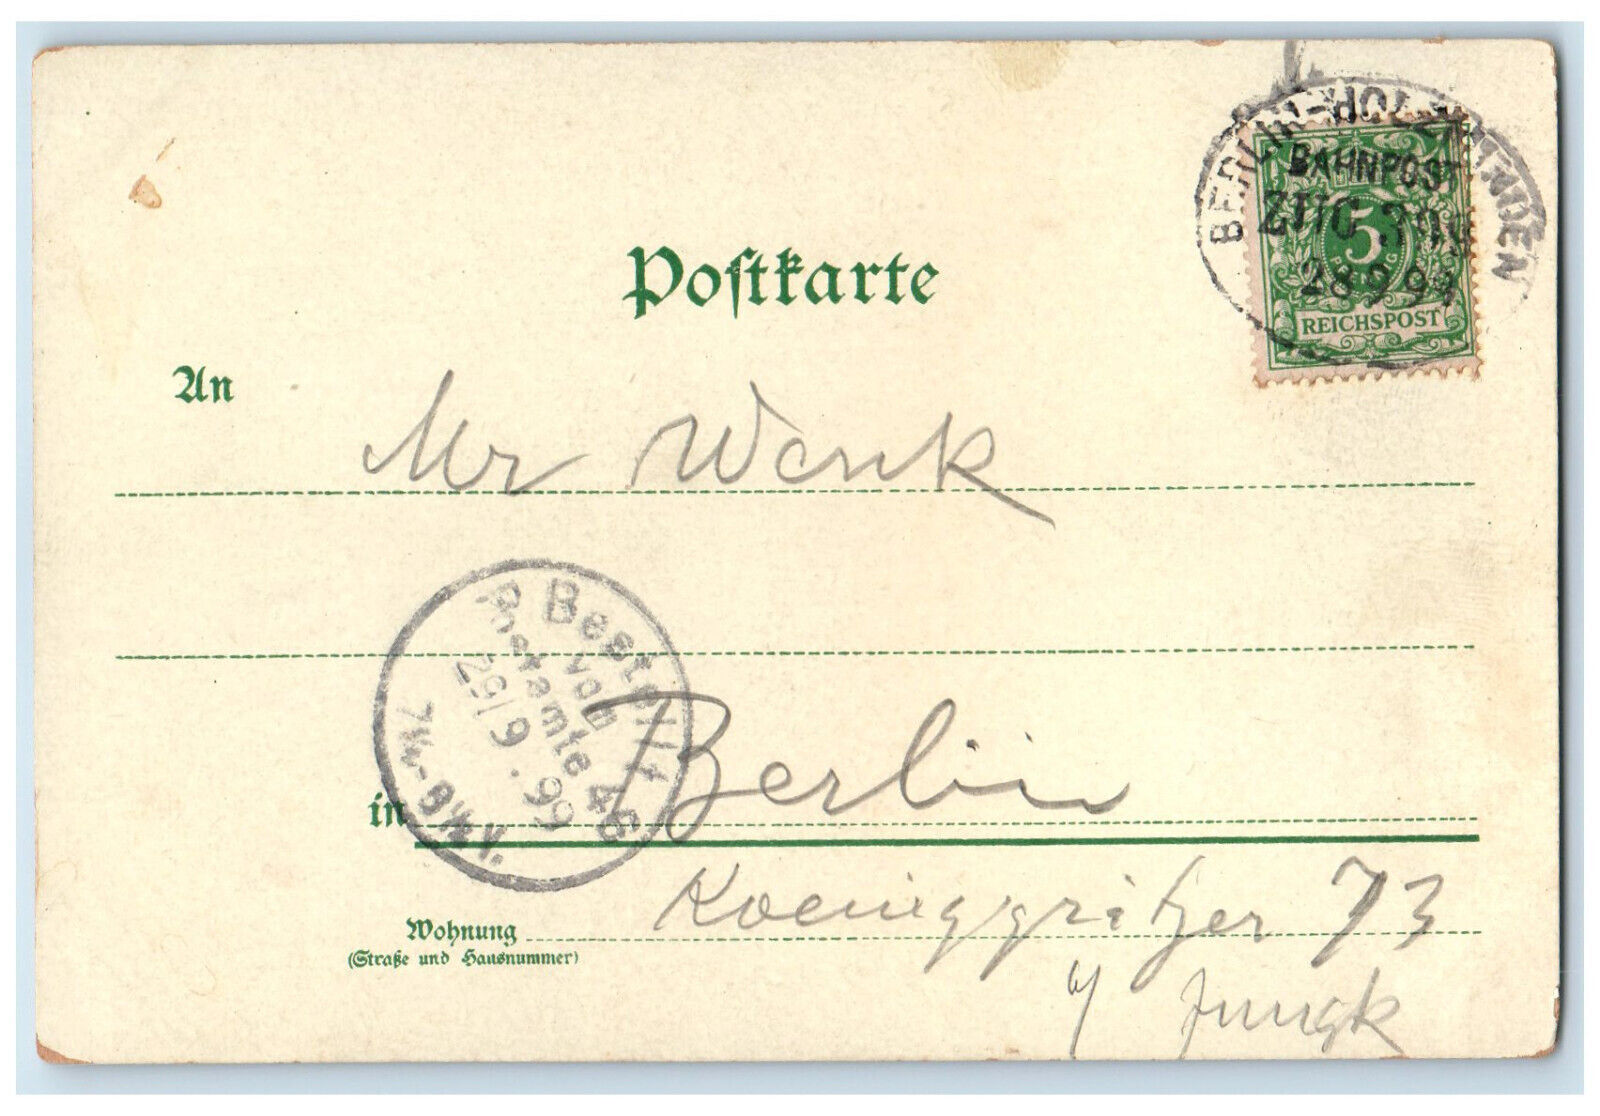 BERLIN-HOLZMINDEN
BAHNPOST
ZUG
28 9 99
5
PFENNIG
REICHSPOST
Postkarte
An
Mr Wenk
Bestellt
vom
Postamte 46
29/9.99
7¼-8½V.
in Berlin
Wohnung Koeniggrätzer 73
(Straße und Hausnummer)
b/ Jungk